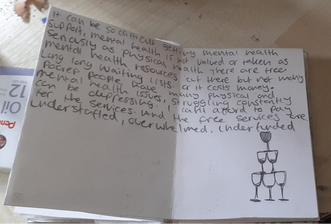 It can be so difficult getting mental health
support, mental health is not valued or taken as
seriously as physical health there are free
mental health resources out there but not many
long long waiting lists or it costs money.
Poorer people have many physical and
mental health issues, struggling constantly
can be depressing. can't afford to pay
for the services. And the free services are
understaffed, overwhelmed, underfunded
Oil
12
Pen